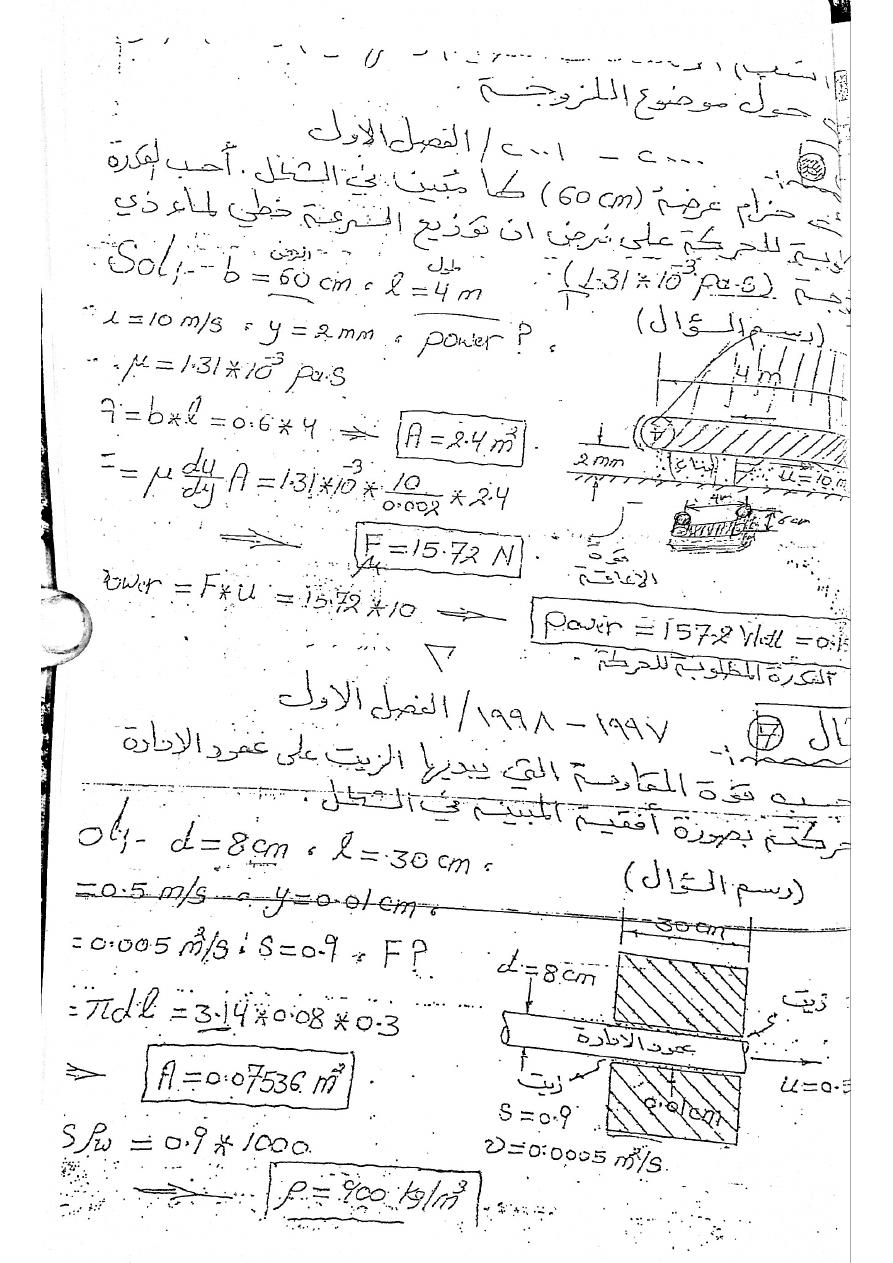 حول موضوع اللزوجة
٢٠٠٠ - ٢٠٠١ / الفصل الاول
حزام عرضه (60 cm) كما مبين في الشكل . أحسب القدرة
للحركة على فرض ان توزيع السرعة خطي لماء ذي
(1.31*10⁻³ pa.s)
Sol:- b = 60 cm ، l = 4 m
العرض
طول
(رسم السؤال)
= 10 m/s ، y = 2 mm ، power ?
μ = 1.31*10⁻³ pa.s
4 m
= b*l = 0.6*4 ⇒ A = 2.4 m²
2 mm
u = 10 m
= μ du/dy A = 1.31*10⁻³ * 10/0.002 * 2.4
4m
6 cm
⇒ F = 15.72 N
قوة
الاعاقة
= F*u = 15.72*10 ⇒ power = 157.2 Watt = 0.1
القدرة المطلوبة للحركة
١٩٩٧ - ١٩٩٨ / الفصل الاول
قوة المقاومة التي يبديها الزيت على عمود الادارة
بصورة أفقية المبينه في الشكل .
d = 8 cm ، l = 30 cm ،
(رسم السؤال)
= 0.5 m/s ، y = 0.01 cm ،
30 cm
= 0.005 m²/s ، S = 0.9 ، F?
d = 8 cm
زيت
= πdl = 3.14*0.08*0.3
عمود الادارة
⇒ A = 0.07536 m²
زيت
u = 0.5
0.01 cm
S = 0.9
Sρw = 0.9 * 1000
υ = 0.0005 m²/s
⇒ ρ = 900 kg/m³